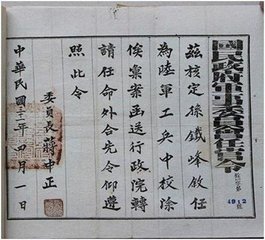 國民政府軍事委員會任令
茲核定孫鐵峰敘任
為陸軍工兵中校除
俟彙案函送行政院轉
請任命外合先令仰遵
照此令
委員長蔣中正
中華民國年四月一日
4912
號